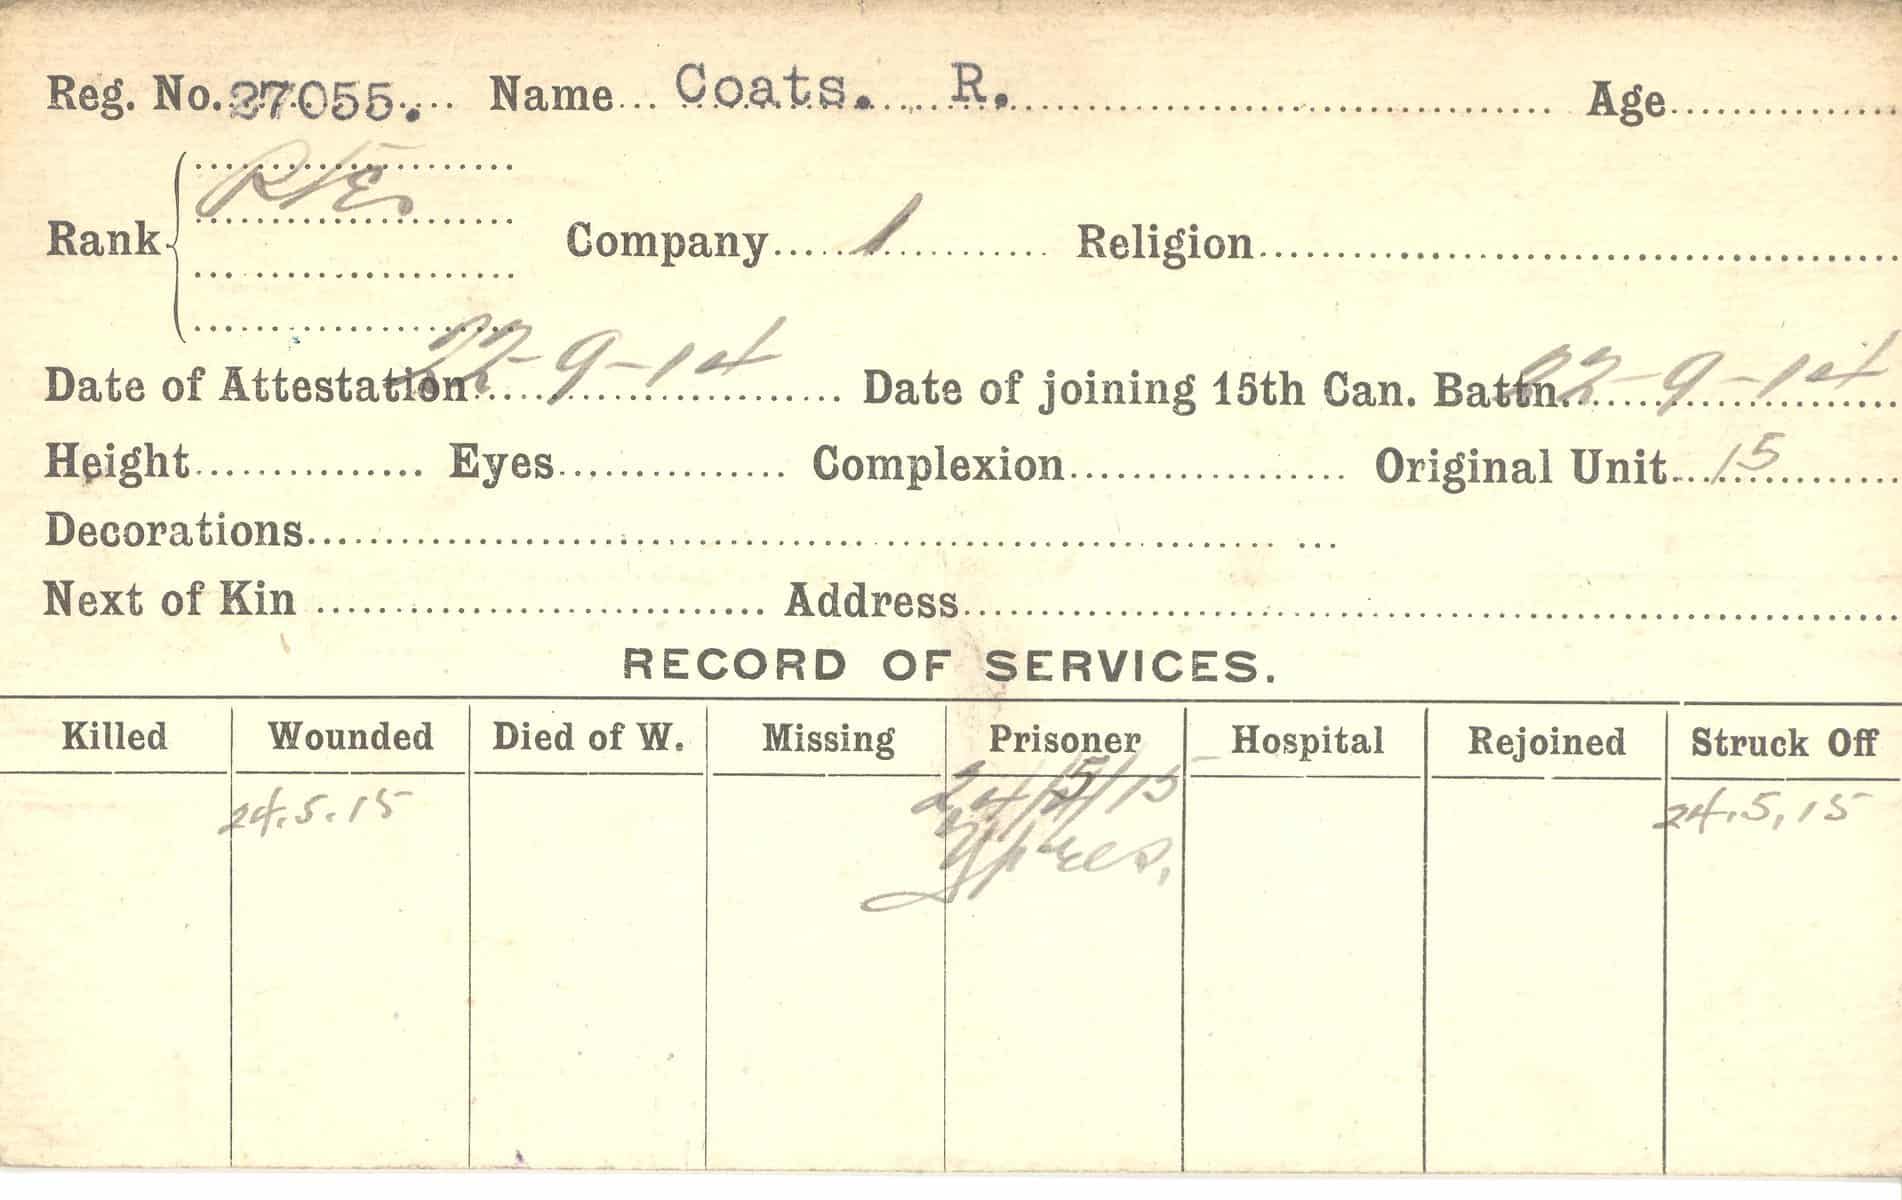 Reg. No. 27055. Name Coats. R. Age
Pte.
Rank Company 1 Religion
Date of Attestation 22-9-14 Date of joining 15th Can. Battn. 22-9-14
Height Eyes Complexion Original Unit 15
Decorations
Next of Kin Address
RECORD OF SERVICES.
Killed Wounded Died of W. Missing Prisoner Hospital Rejoined Struck Off
24.5.15 24/5/15 24.5.15
Ypres.